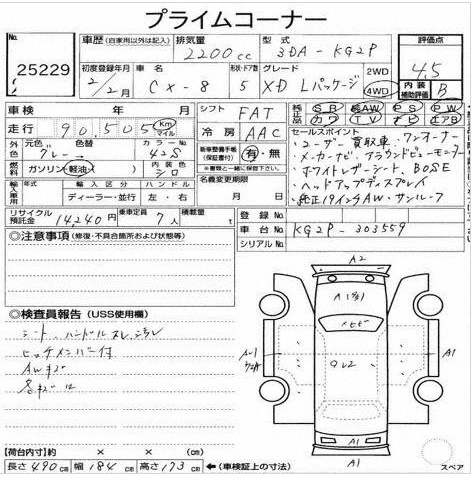 プライムコーナー
No. 25229
車歴(自家用以外は記入) 排気量 2200cc 型式 3DA-KG2P 評価点 4.5
初度登録年月 2/2月 車名 CX-8 形状・ドア数 5 グレード XD Lパッケージ 2WD 4WD 内装補助評価 B
車検 年 月 シフト FAT 純正品 SR AW PS PW
走行 90,505 km マイル 冷房 AAC カワ TV ナビ エアB
外色 元色 グレー 替色 カラーNo. 42S 新車整備手帳(保証書付) 有・無
ガソリン・軽油( ) 内装色 シロ ※書類と一緒にご提出ください
輸入車用 年式 輸入区分 ハンドル 名義変更期限
年 ディーラー・並行 左・右
リサイクル預託金 14,240円 乗車定員 7人 積載量 t
セールスポイント
・ユーザー買取車・ワンオーナー
・メーカーナビ・アラウンドビューモニター
・ホワイトレザーシート、BOSE
・ヘッドアップディスプレイ
・純正19インチAW・サンルーフ
登録No.
車台No. KG2P-303559
シリアルNo.
◎注意事項(修復・不具合箇所および状態等)
◎検査員報告(USS使用欄)
シート、ハンドルスレ、シワ
ヒッチメンバー付
AWキズ
各キズ
A2
A1
A1
A1
A1
【荷台内寸】約 × × (cm)
長さ 490cm 幅 184cm 高さ 173cm ←(車検証上の寸法)
スペア